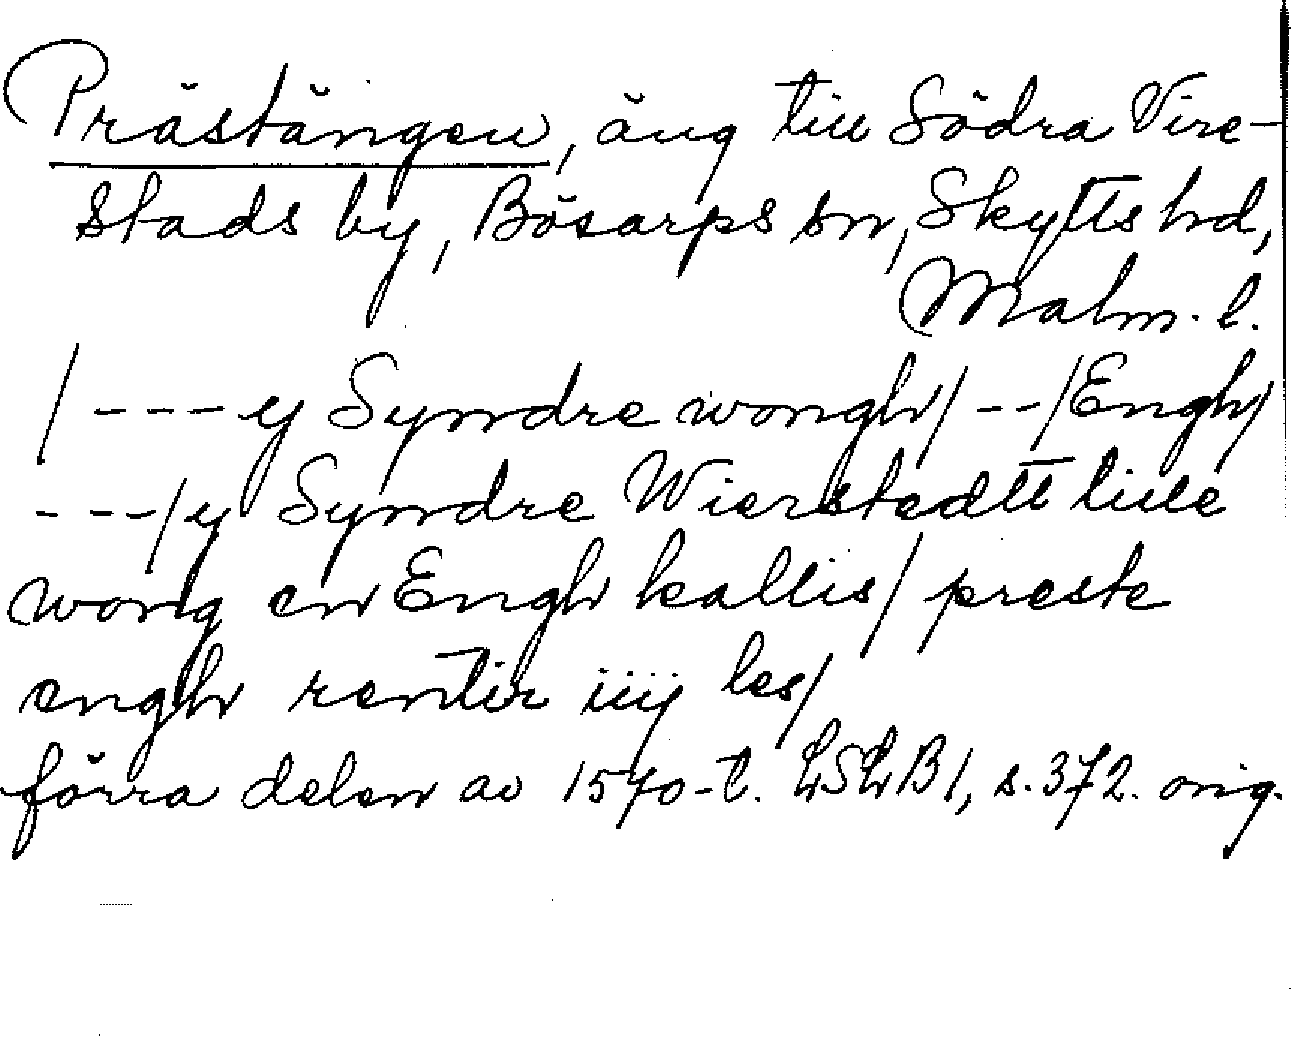 Prästängen, äng till Södra Vire-
stads by, Bösarps sn, Skytts hd,
Malm. l.
/ --- y Syndre wongh/ --/Engh/
---/y Syndre Wierstedtt lille
wong en Engh kallis/ preste
engh rentir iiij les/
förra delen av 1570-t. LSLB1, s. 372. orig.